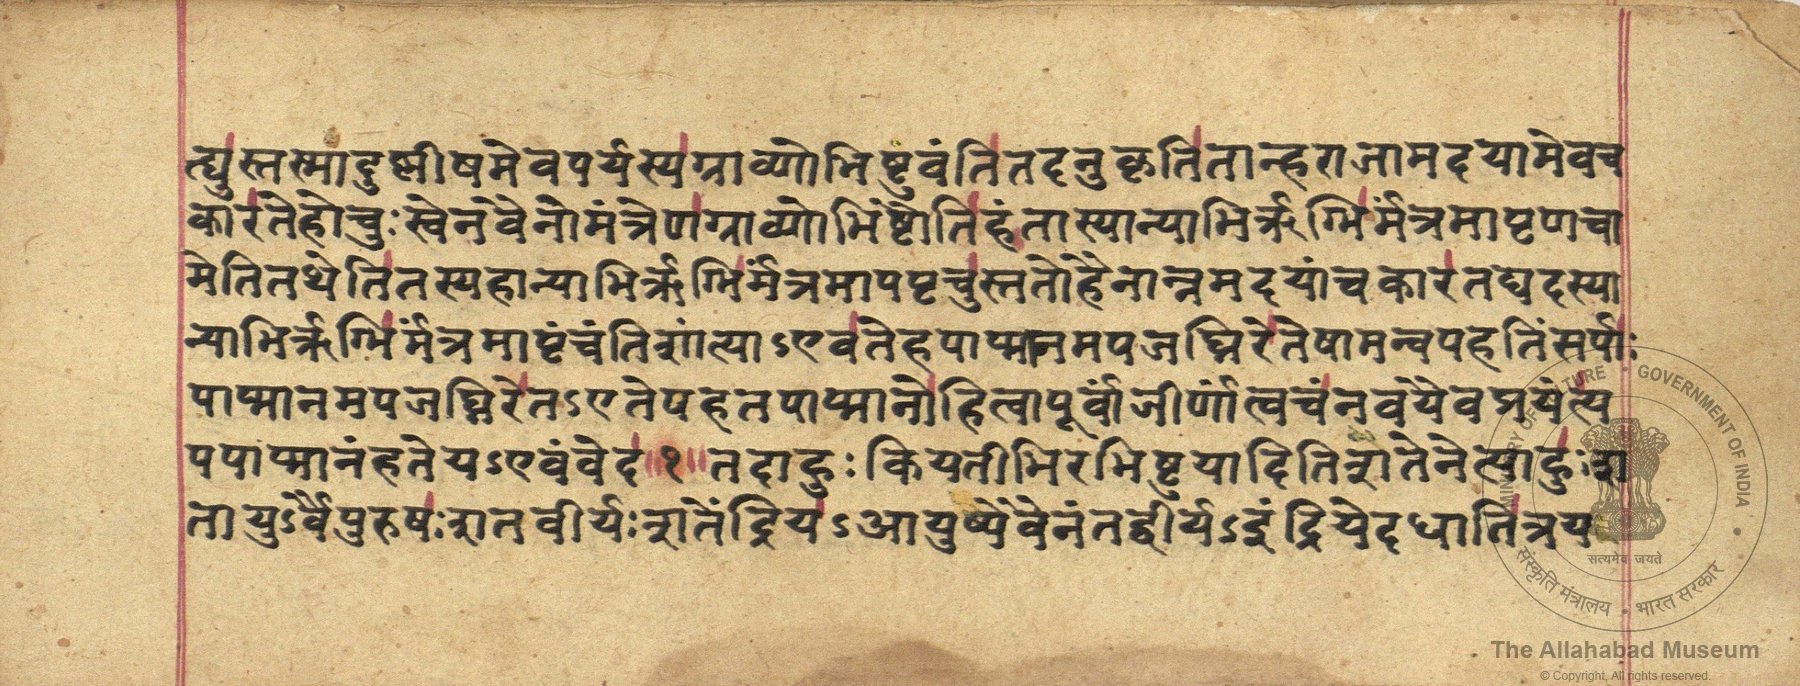 त्युस्तस्मादुष्णीषमेवपर्यस्यग्राव्णोभिष्टुवंतितदनुकृतितान्हराजामदयामेवच
कारतेहोचुःस्वेनवैनोमंत्रेणग्राव्णोभिष्टौतिहंतास्यान्याभिर्ऋग्भिर्मंत्रमापृणचा
मेतितथेतितस्यहान्याभिर्ऋग्भिर्मंत्रमापपृचुस्ततोहैनान्नमदयांचकारतद्यदस्या
न्याभिर्ऋग्भिर्मंत्रमापृंचंतिशांत्याऽएवतेहपाप्मानमपजघ्निरेतेषामन्वपहतिंसर्पाः
पाप्मानमपजघ्निरेतऽएतेपहतपाप्मानोहित्वापूर्वांजीर्णांत्वचंनवयैवप्रयंत्य
पपाप्मानंहतेयऽएवंवेद॥१॥तदाहुःकियतीभिरभिष्टुयादितिशतेनेत्याहुःश
तायुऽर्वैपुरुषःशतवीर्यःशतेंद्रियऽआयुष्येवैनंतद्वीर्यऽइंद्रियेदधातित्रय
MINISTRY OF CULTURE • GOVERNMENT OF INDIA
सत्यमेव जयते
संस्कृति मंत्रालय • भारत सरकार
The Allahabad Museum
© Copyright, All rights reserved.